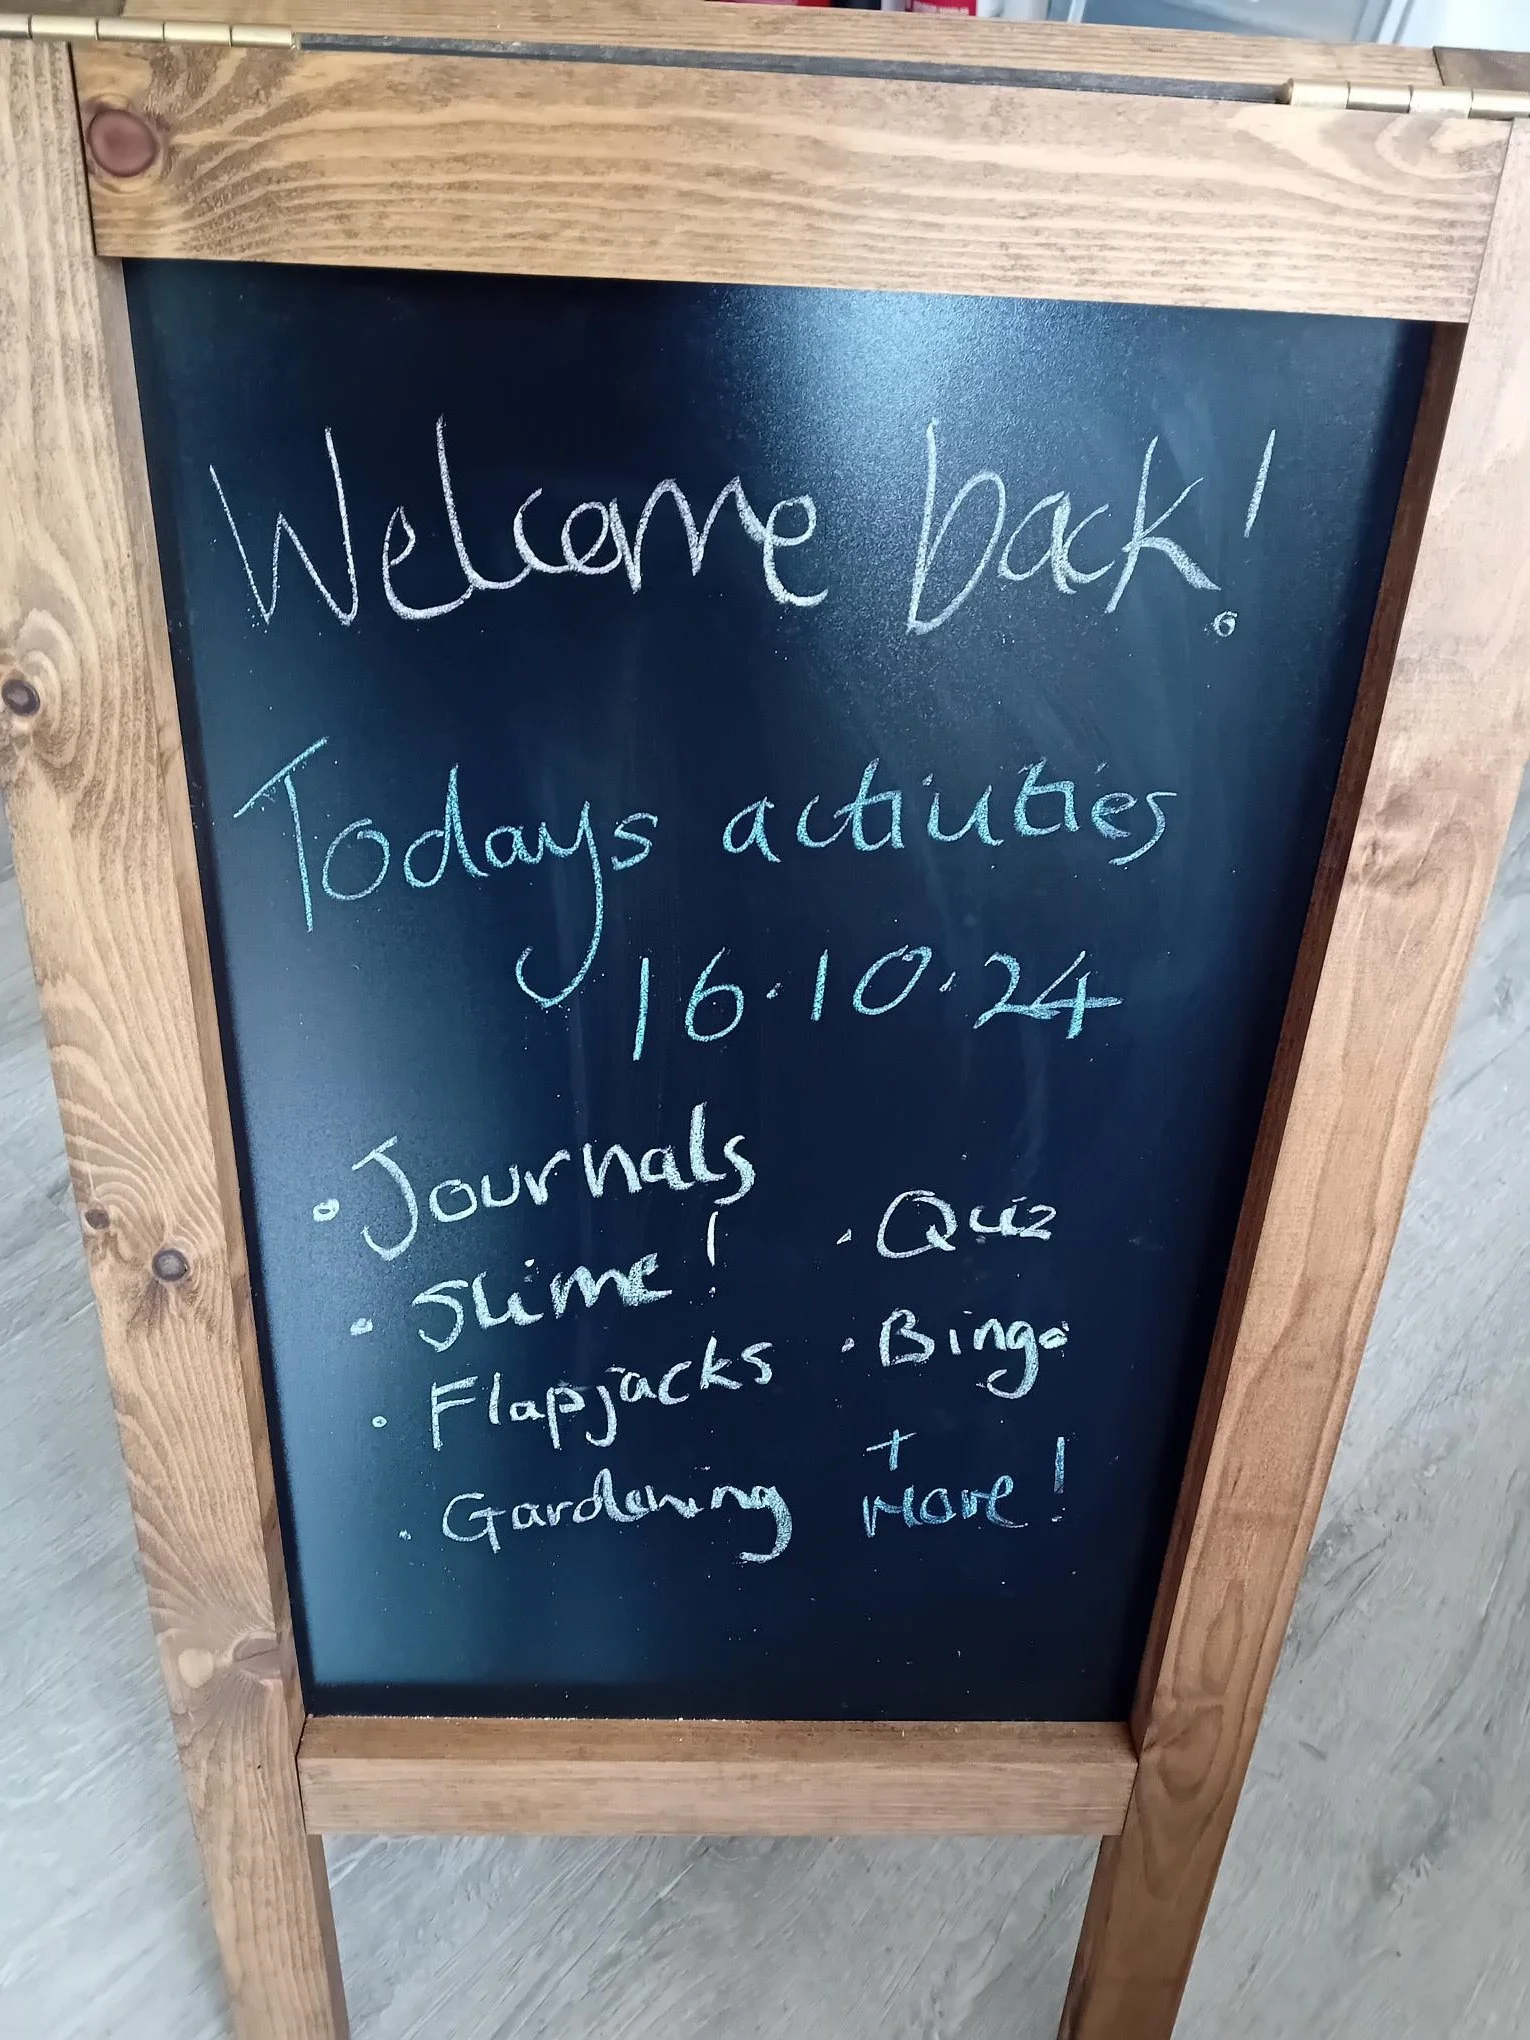 Welcome back!
Todays activities
16.10.24
• Journals
• Slime!
• Flapjacks
• Gardening
• Quiz
• Bingo
+
More!